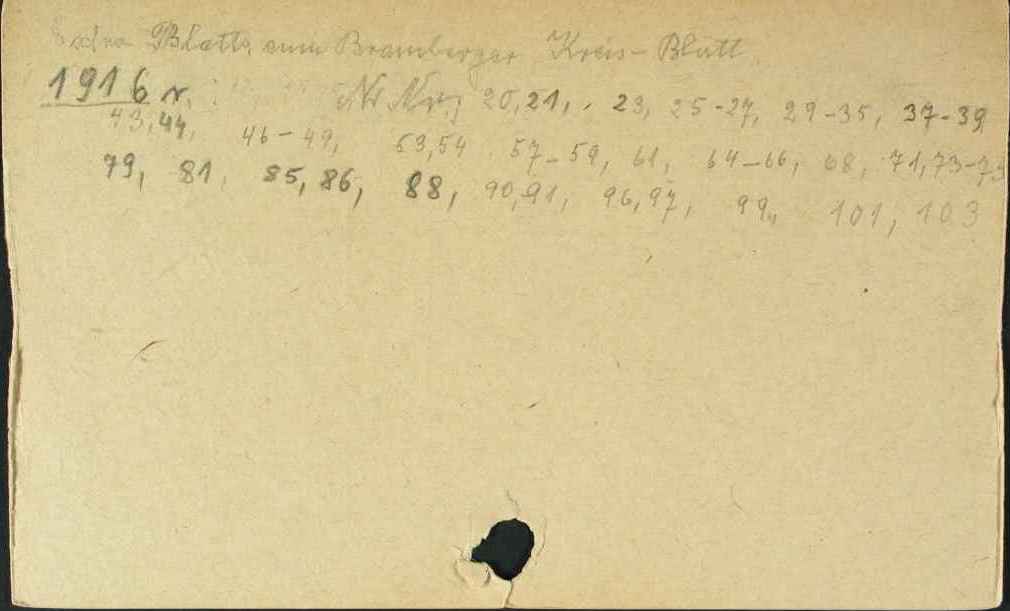 Blatt zum Bromberger Kreis-Blatt
1916 r. Nr Nr; 20, 21, . 23, 25-27, 29-35, 37-39
43, 44, 46-49, 53, 54 57-59, 61, 64-66, 68, 71, 73-75
79, 81, 85, 86, 88, 90, 91, 96, 97, 99, 101, 103